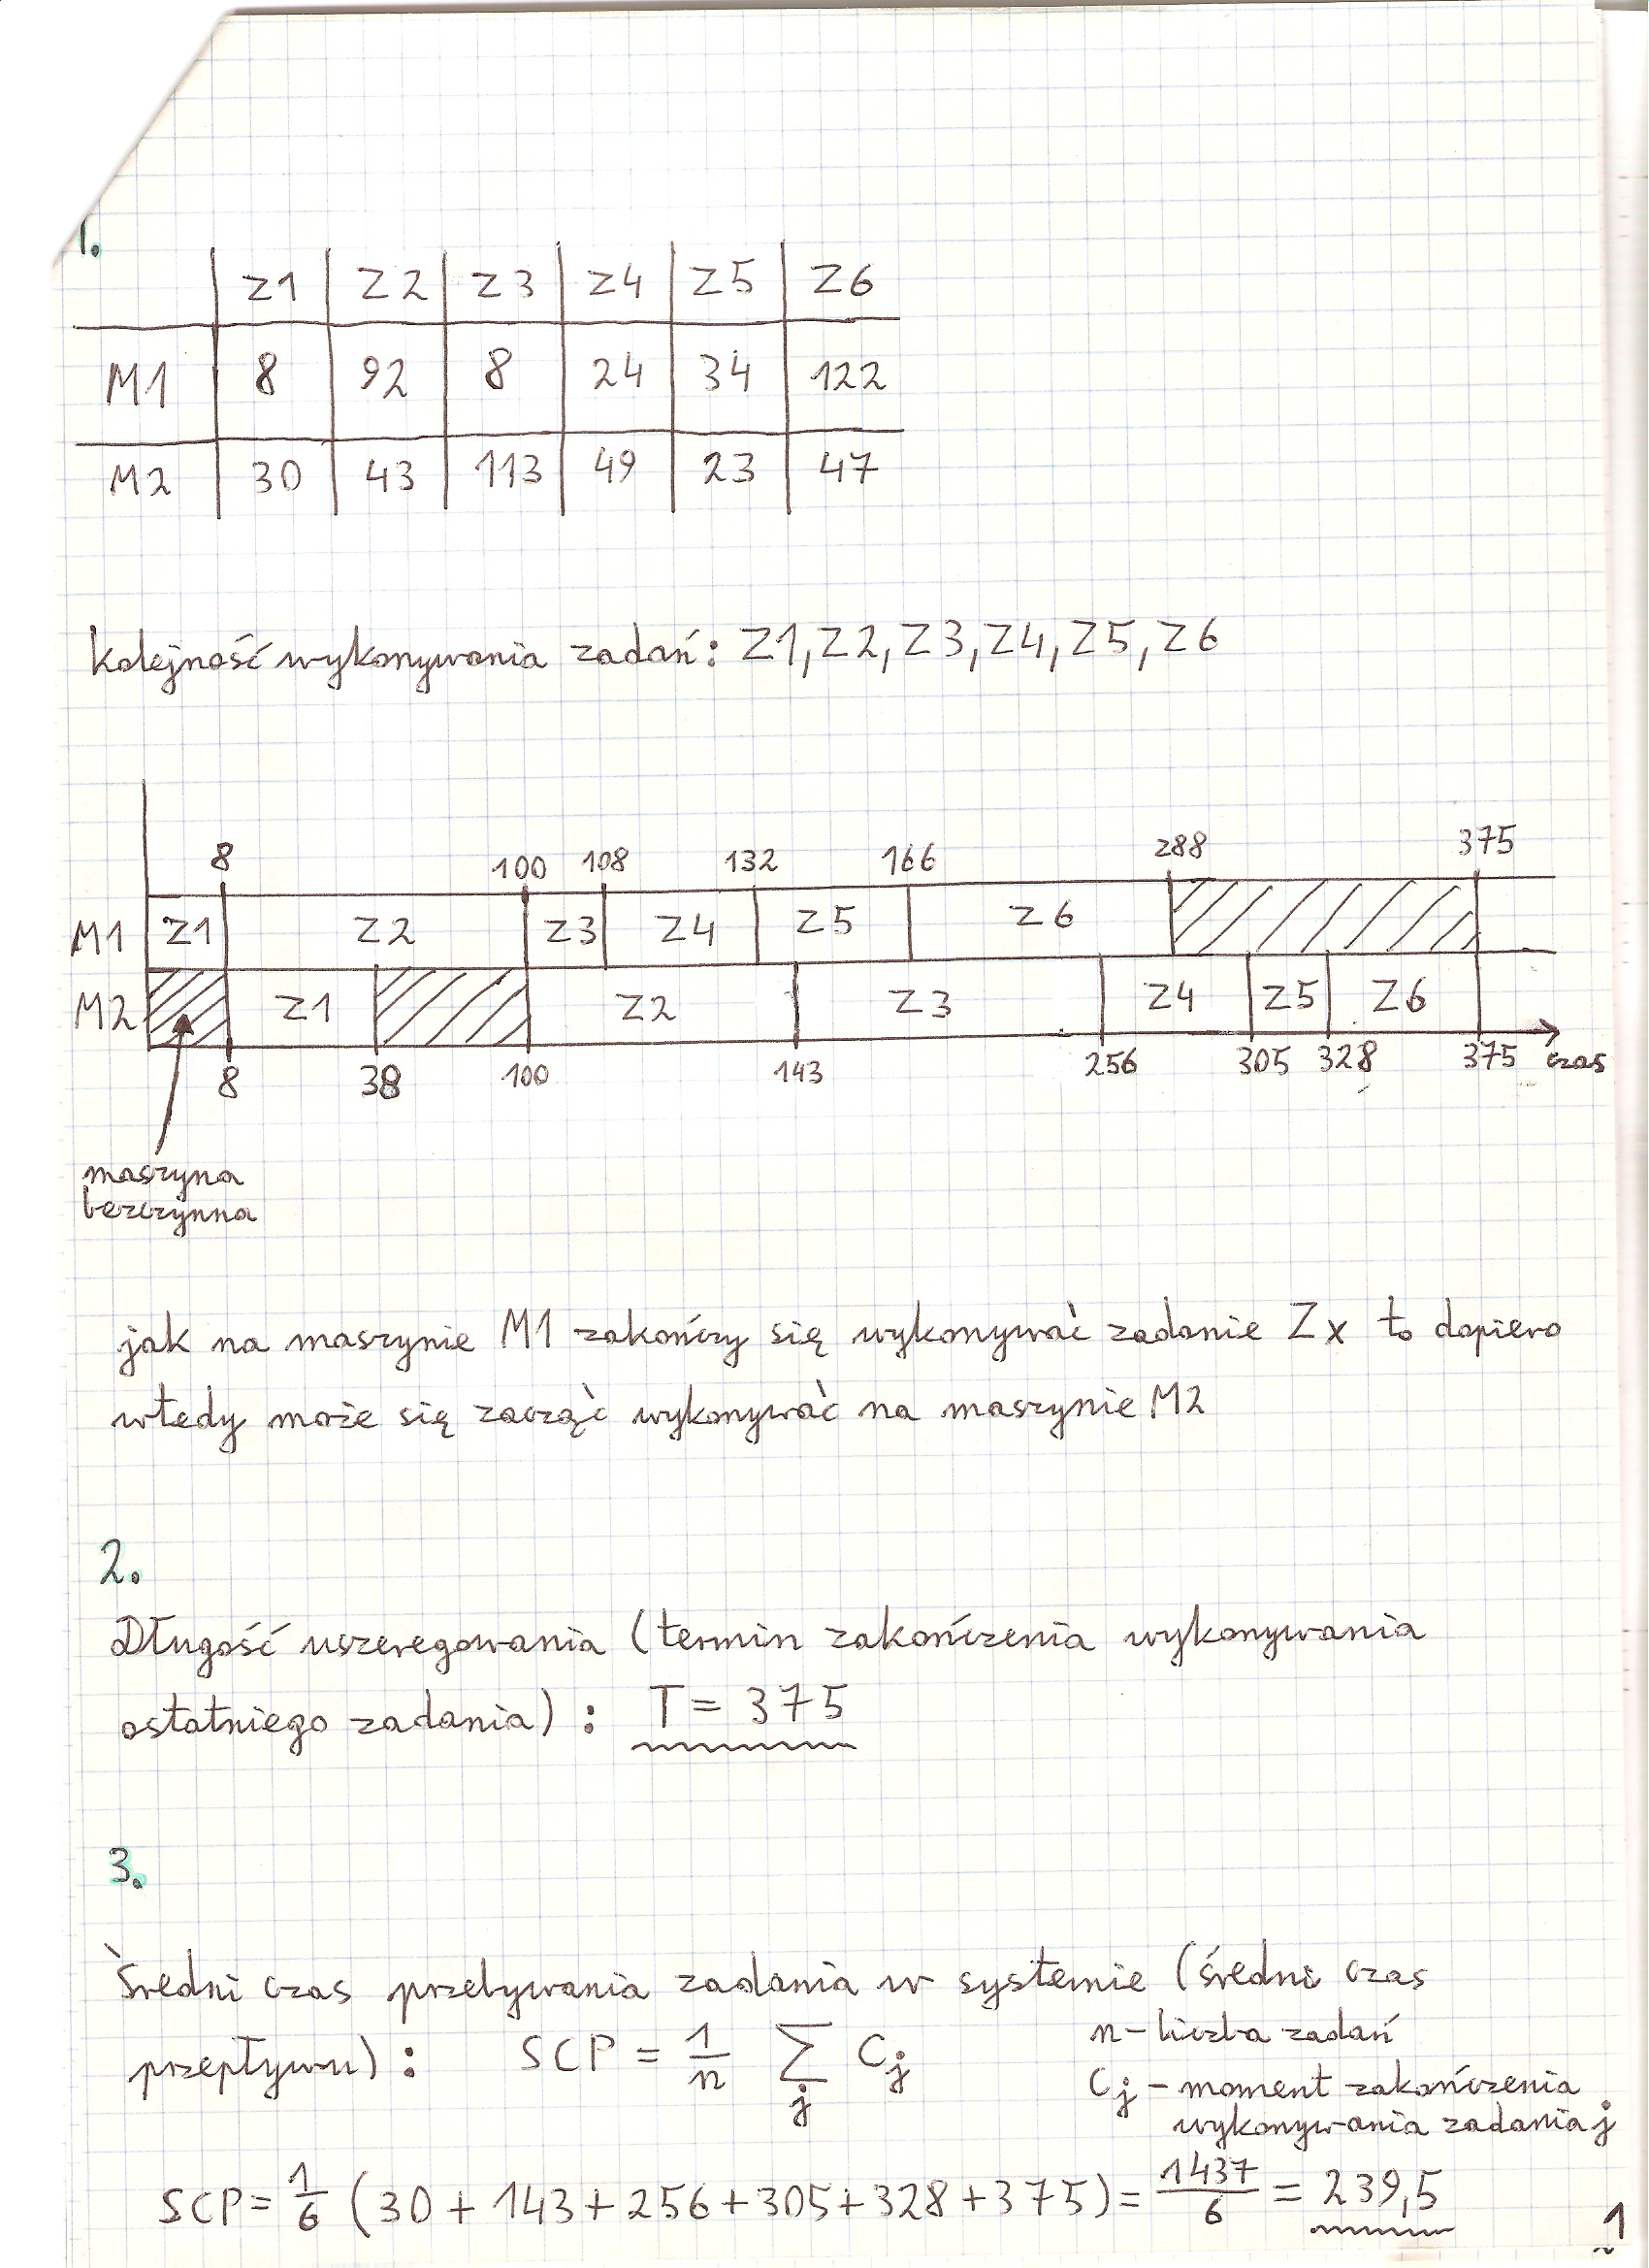 1.
Z1 Z2 Z3 Z4 Z5 Z6
M1 8 92 8 24 34 122
M2 30 43 113 49 23 47
kolejność wykonywania zadań: Z1, Z2, Z3, Z4, Z5, Z6
8 100 108 132 166 288 375
M1 Z1 Z2 Z3 Z4 Z5 Z6
M2 Z1 Z2 Z3 Z4 Z5 Z6
8 38 100 143 256 305 328 375 czas
maszyna
bezczynna
jak na maszynie M1 zakończy się wykonywać zadanie Zx to dopiero
wtedy może się zacząć wykonywać na maszynie M2
2.
Długość uszeregowania (termin zakończenia wykonywania
ostatniego zadania): T = 375
3.
Średni czas przebywania zadania w systemie (średni czas
przepływu): SCP = 1/n ∑j Cj
n - liczba zadań
Cj - moment zakończenia
wykonywania zadania j
SCP = 1/6 (30 + 143 + 256 + 305 + 328 + 375) = 1437/6 = 239,5
1